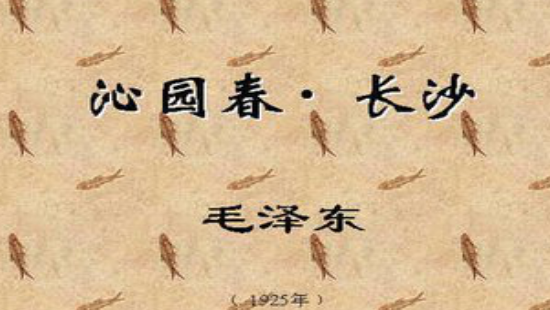 沁园春·长沙
毛泽东
（1925年）